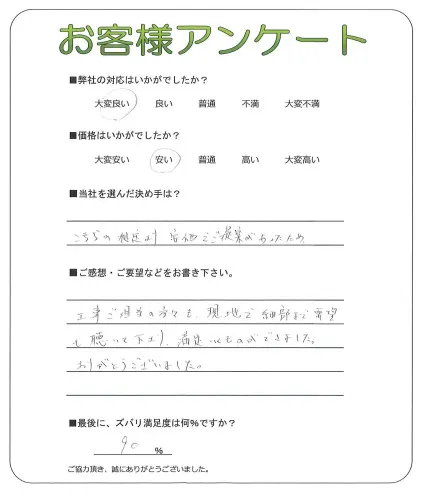 お客様アンケート
■弊社の対応はいかがでしたか？
大変良い 良い 普通 不満 大変不満
■価格はいかがでしたか？
大変安い 安い 普通 高い 大変高い
■当社を選んだ決め手は？
こちらの想定より 安価にご提案があったため
■ご感想・ご要望などをお書き下さい。
工事ご担当の方も、現地で細部まで要望
も聴いて下さり、満足いくものができました。
ありがとうございました。
■最後に、ズバリ満足度は何％ですか？
90 %
ご協力頂き、誠にありがとうございました。